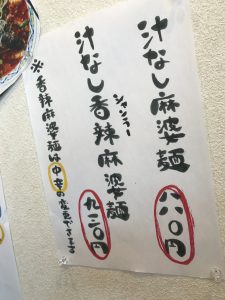 汁なし麻婆麺 八八〇円
シャンラー
汁なし香辣麻婆麺 九三〇円
※香辣麻婆麺は中辛の変更できます